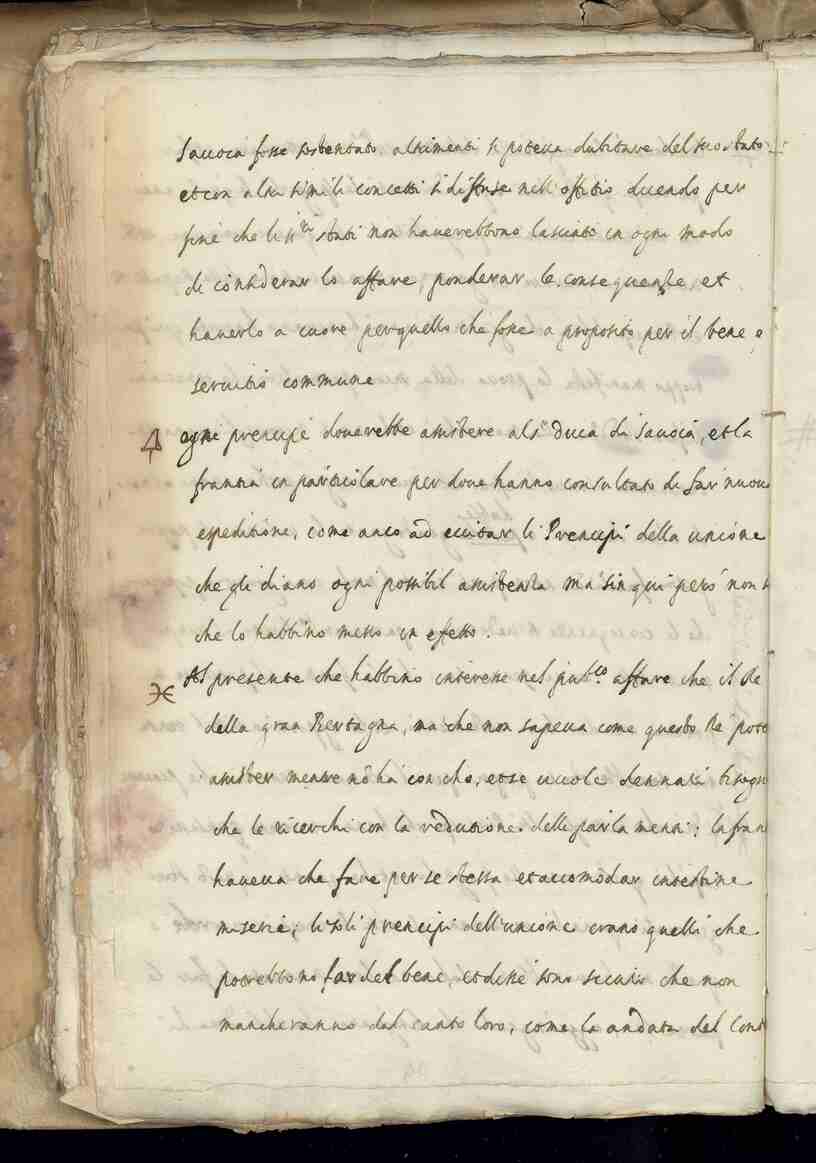 Sauoia fosse sostentato, altrimenti si poteua dubitare del suo stato
et con altri simili concetti si diffuse nell'offitio dicendo per
fine che li ss.ri stati non hauerebbono lasciato in ogni modo
di considerar lo affare, ponderar le consequenze, et
hauerlo a cuore per quello che fosse a proposito per il bene, e
seruitio commune
ogni prencipe douerebbe assistere al s.r Duca di Sauoia, et la
franza in particolare per doue hanno consultato di far nuoua
espeditione, come anco ad eccitar li Prencipi della unione
che gli diano ogni possibil assistenza ma sin qui però non
che lo habbino messo in effetto.
Al presente che habbino interesse nel pub.co affare che il Re
della gran Bertagna, ma che non sapeua come questo Re
assister mentre nõ ha con che, et se uuole dennari
che le ricerchi con la reduttione delli parlamenti; la
haueua che fare per se stessa et accomodar intestine
miserie; li soli prencipi dell'unione erano quelli che
potrebbono far del bene, et disse sono sicuro che non
mancheranno dal canto loro, come la andata del